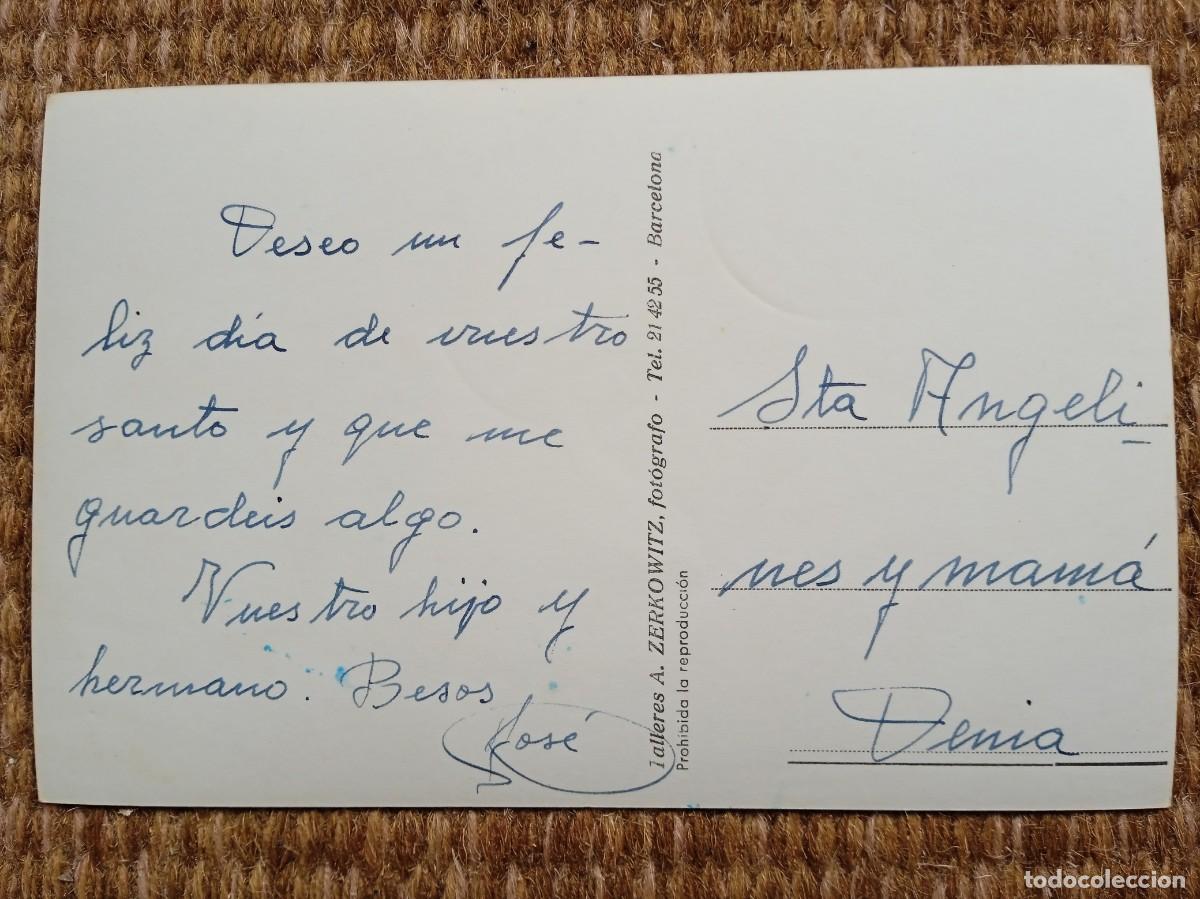 Deseo un fe-
liz día de vuestro
santo y que me
guardeis algo.
Vuestro hijo y
hermano. Besos
José
Talleres A. ZERKOWITZ, fotógrafo - Tel. 21 42 55 - Barcelona
Prohibida la reproducción
Sta Angeli-
nes y mamá
Denia
todocoleccion